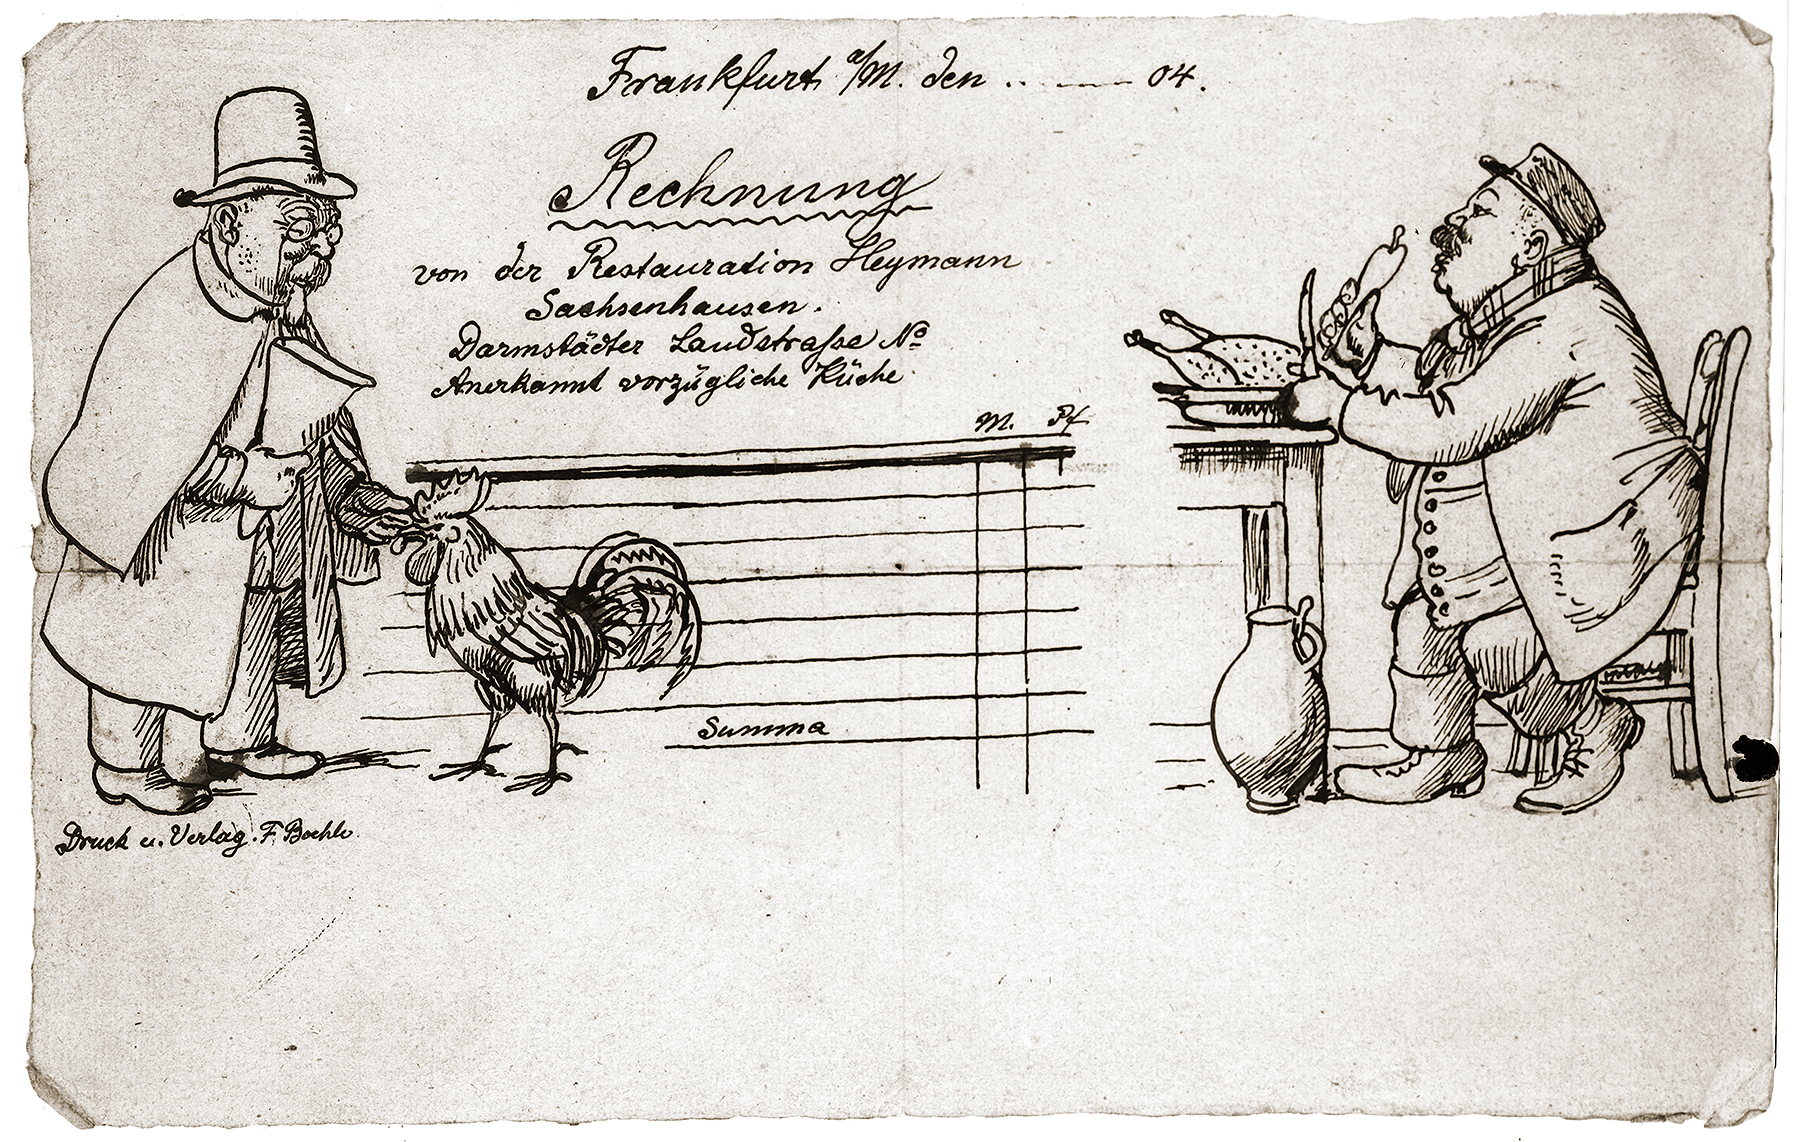 Frankfurt a/M. den .. ---- 04.
Rechnung
von der Restauration Heymann
Sachsenhausen.
Darmstädter Landstrasse No
Anerkannt vorzügliche Küche
M. Pf
Summa
Druck u. Verlag. F. Boehle.